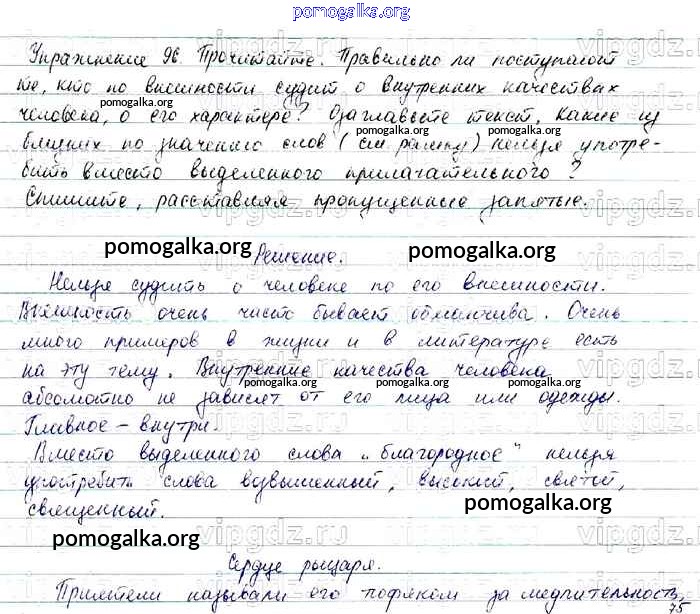 pomogalka.org
Упражнение 96. Прочитайте. Правильно ли поступают
те, кто по внешности судит о внутренних качествах
человека, о его характере? Озаглавьте текст. Какие из
близких по значению слов (см. рамку) нельзя употре-
бить вместо выделенного прилагательного?
Спишите, расставляя пропущенные запятые.
Решение.
Нельзя судить о человеке по его внешности.
Внешность очень часто бывает обманчива. Очень
много примеров в жизни и в литературе есть
на эту тему. Внутренние качества человека
абсолютно не зависят от его лица или одежды.
Главное – внутри.
Вместо выделенного слова "благородное" нельзя
употребить слова возвышенный, высокий, святой,
священный.
Сердце рыцаря.
Приятели называли его тюфяком за медлительность
75